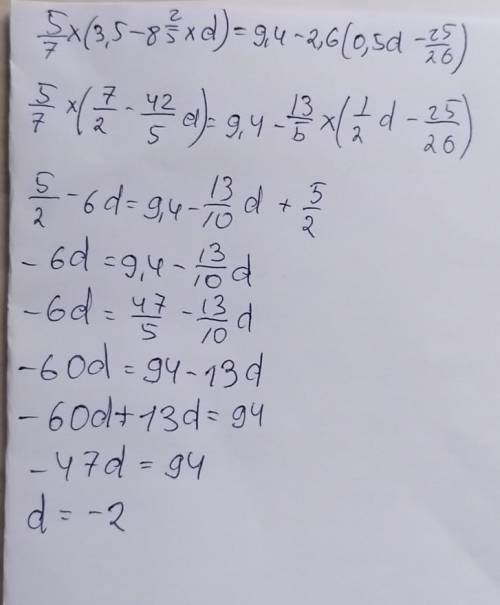 5/7 x (3,5 - 8 2/5 x d) = 9,4 - 2,6 (0,5d - 25/26)
5/7 x (7/2 - 42/5 d) = 9,4 - 13/5 x (1/2 d - 25/26)
5/2 - 6d = 9,4 - 13/10 d + 5/2
- 6d = 9,4 - 13/10 d
- 6d = 47/5 - 13/10 d
- 60d = 94 - 13d
- 60d + 13d = 94
- 47d = 94
d = - 2